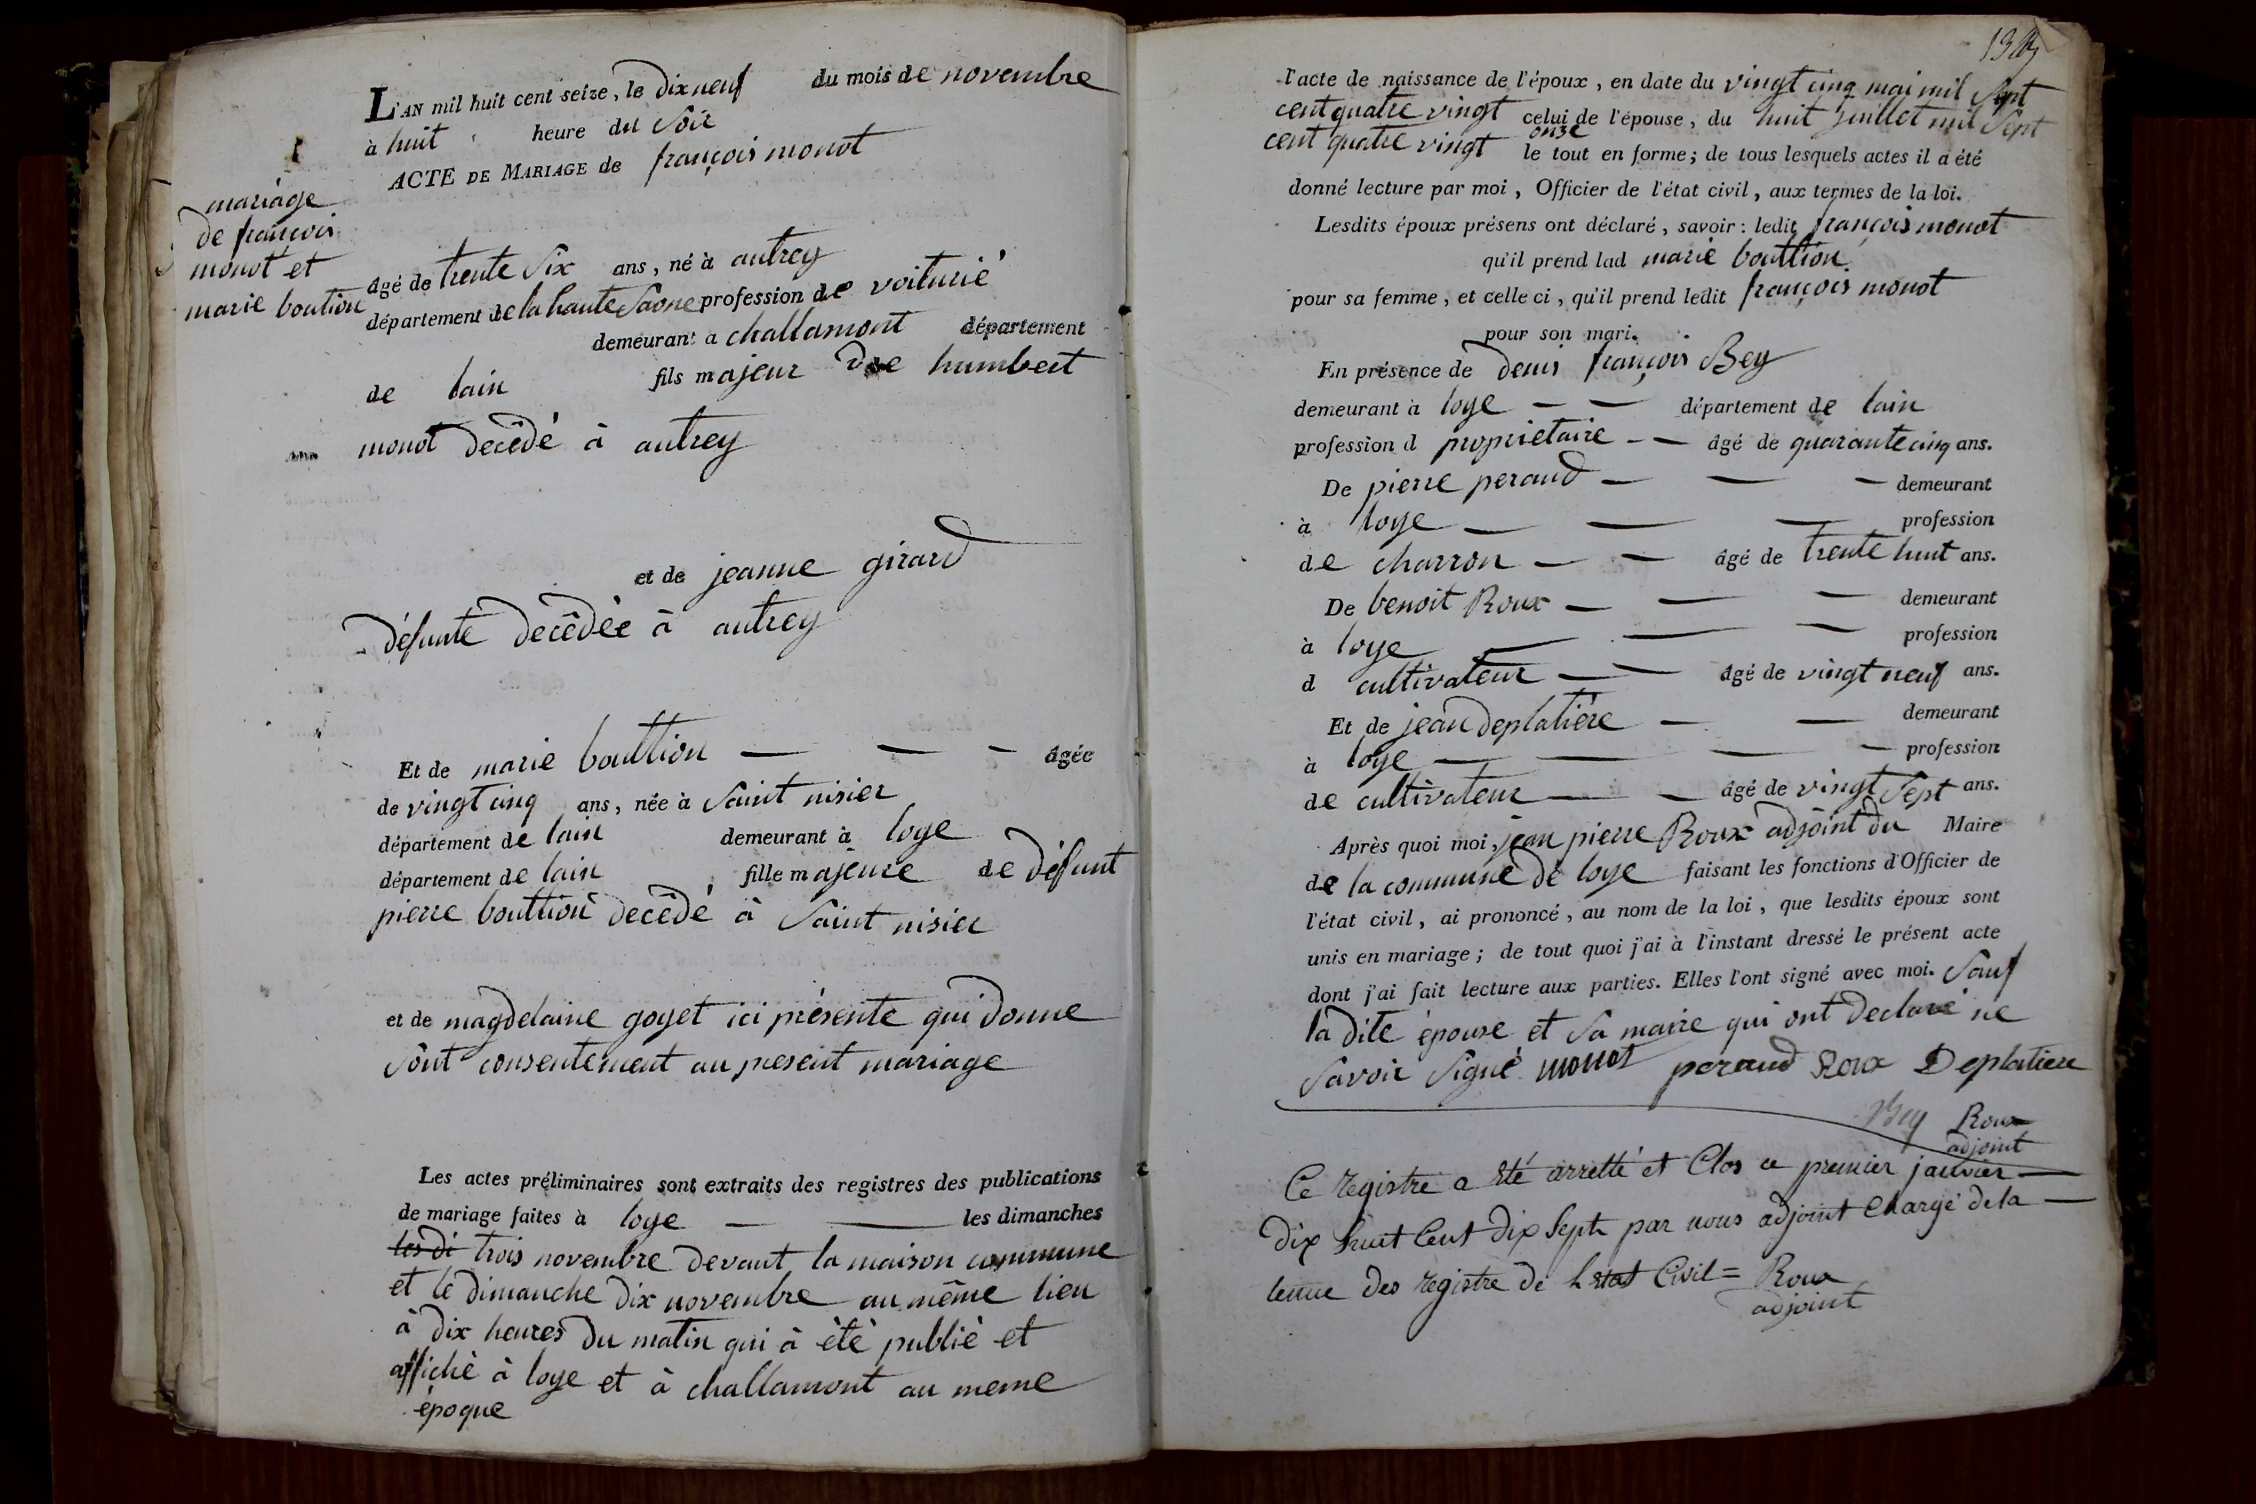 L'AN mil huit cent seize, le dix neuf du mois de novembre
à huit heure du Soir
ACTE DE MARIAGE de françois monot
mariage
de françois
monot et
marie boution
âgé de trente Six ans, né à autrey
département de la haute Saone profession de voiturié
demeurant a challamont département
de lain fils majeur de humbert
monot decêdé à autrey
et de jeanne girard
défunte decêdée à autrey
Et de marie bouttion — — — âgée
de vingt cinq ans, née à Saint nisier
département de lain demeurant à loye
département de lain fille majeure de défunt
pierre bouttion decêdé à Saint nisier
et de magdelaine goyet ici présente qui donne
Sont consentement au present mariage
Les actes préliminaires sont extraits des registres des publications
de mariage faites à loye — — les dimanches
les di trois novembre devant la maison commune
et le dimanche dix novembre au même lieu
à dix heures du matin qui à èté publié et
affiché à loye et à challamont au meme
époque
l'acte de naissance de l'époux, en date du vingt cinq mai mil Sept
cent quatre vingt celui de l'épouse, du huit juillet mil Sept
cent quatre vingt onze le tout en forme; de tous lesquels actes il a été
donné lecture par moi, Officier de l'état civil, aux termes de la loi.
Lesdits époux présens ont déclaré, savoir: ledit françois monot
qu'il prend lad marie bouttion
pour sa femme, et celle ci, qu'il prend ledit françois monot
pour son mari.
En présence de denis françois Bey
demeurant à loye — — département de lain
profession d proprietaire — — âgé de quarante cinq ans.
De pierre peraud — — — demeurant
à loye — — — profession
de charron — — âgé de trente huit ans.
De benoit Roux — — — demeurant
à loye — — — profession
d cultivateur — — âgé de vingt neuf ans.
Et de jean deplatière — — demeurant
à loye — — — — profession
de cultivateur — — âgé de vingt Sept ans.
Après quoi moi, jean pierre Roux adjoint du Maire
de la commune de loye faisant les fonctions d'Officier de
l'état civil, ai prononcé, au nom de la loi, que lesdits époux sont
unis en mariage; de tout quoi j'ai à l'instant dressé le présent acte
dont j'ai fait lecture aux parties. Elles l'ont signé avec moi. Sauf
la dite épouse et Sa maire qui ont declaré ne
Savoir Signé monot peraud Roux Deplatiere
Bey Roux
adjoint
Ce registre a eté arretté et Clos ce premier janvier —
dix huit Cent dix Sept par nous adjoint Chargé dela —
tenue des registre de Letat Civil = Roux
adjoint